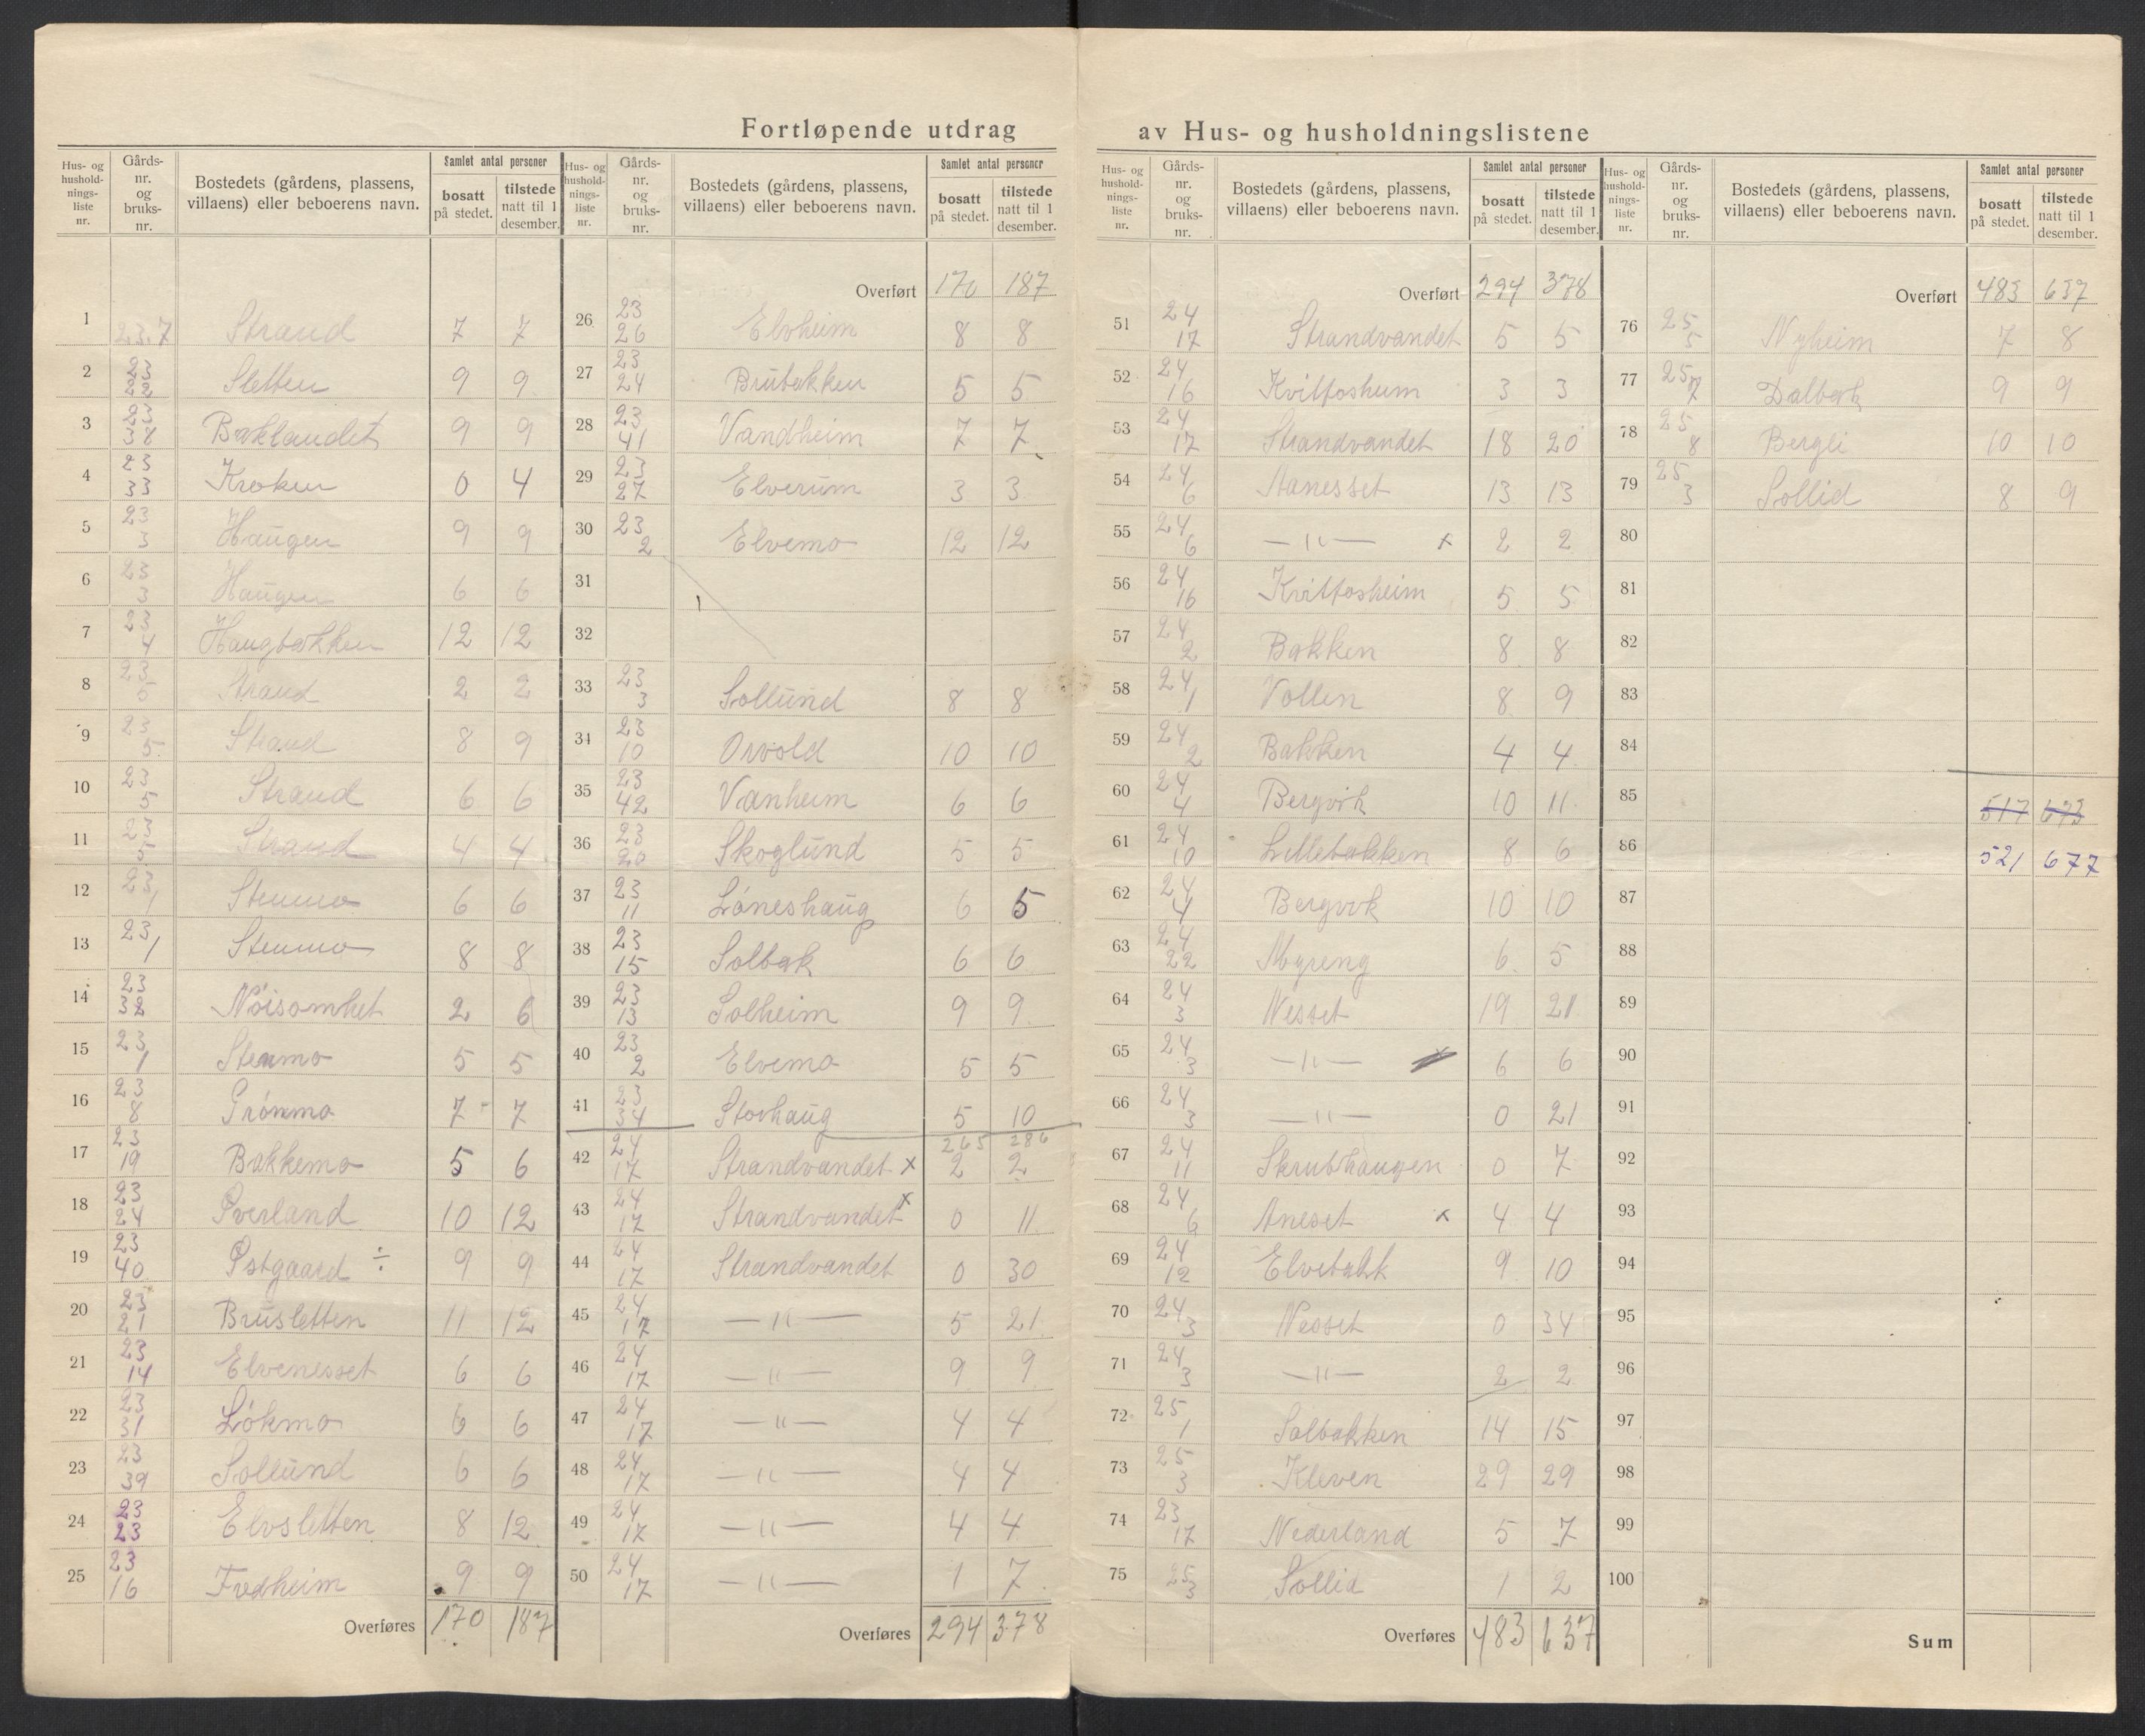 Fortløpende utdrag av Hus- og husholdningslistene
Hus- og husholdnings-liste nr. Gårds-nr. og bruks-nr. Bostedets (gårdens, plassens, villaens) eller beboerens navn. Samlet antal personer bosatt på stedet. tilstede natt til 1 desember.
1 23.7 Strand 7 7
2 23 22 Sletten 9 9
3 23 38 Baklandet 9 9
4 23 33 Kroken 0 4
5 23 3 Haugen 9 9
6 23 3 Haugen 6 6
7 23 4 Haugbakken 12 12
8 23 5 Strand 2 2
9 23 5 Strand 8 9
10 23 5 Strand 6 6
11 23 5 Strand 4 4
12 23 1 Stenmo 6 6
13 23 1 Stenmo 8 8
14 23 32 Nöisomhet 2 6
15 23 1 Stenmo 5 5
16 23 8 Grönmo 7 7
17 23 19 Bakkemo 5 6
18 23 24 Överland 10 12
19 23 40 Östgaard ÷ 9 9
20 23 21 Brusletten 11 12
21 23 14 Elvenesset 6 6
22 23 31 Lökmo 6 6
23 23 39 Sollund 6 6
24 23 23 Elvsletten 8 12
25 23 16 Fredheim 9 9
Overføres 170 187
Hus- og husholdnings-liste nr. Gårds-nr. og bruks-nr. Bostedets (gårdens, plassens, villaens) eller beboerens navn. Samlet antal personer bosatt på stedet. tilstede natt til 1 desember.
Overført 170 187
26 23 26 Elvheim 8 8
27 23 24 Brubakken 5 5
28 23 41 Vandheim 7 7
29 23 27 Elverum 3 3
30 23 2 Elvemo 12 12
31
32
33 23 3 Sollund 8 8
34 23 10 Orvold 10 10
35 23 42 Vanheim 6 6
36 23 20 Skoglund 5 5
37 23 11 Löneshaug 6 5
38 23 15 Solbak 6 6
39 23 13 Solheim 9 9
40 23 2 Elvemo 5 5
41 23 34 Storhaug 5 10
265 286
42 24 17 Strandvandet x 2 2
43 24 17 Strandvandet x 0 11
44 24 17 Strandvandet 0 30
45 24 17 —"— 5 21
46 24 17 —"— 9 9
47 24 17 —"— 4 4
48 24 17 —"— 4 4
49 24 17 —"— 4 4
50 24 17 —"— 1 7
Overføres 294 378
Hus- og husholdnings-liste nr. Gårds-nr. og bruks-nr. Bostedets (gårdens, plassens, villaens) eller beboerens navn. Samlet antal personer bosatt på stedet. tilstede natt til 1 desember.
Overført 294 378
51 24 17 Strandvandet 5 5
52 24 16 Kvitfosheim 3 3
53 24 17 Strandvandet 18 20
54 24 6 Aanesset 13 13
55 24 6 —"— x 2 2
56 24 16 Kvitfosheim 5 5
57 24 2 Bakken 8 8
58 24 1 Vollen 8 9
59 24 2 Bakken 4 4
60 24 4 Bergvik 10 11
61 24 10 Lillebakken 8 6
62 24 4 Bergvik 10 10
63 24 22 Myreng 6 5
64 24 3 Nesset 19 21
65 24 3 —"— x 6 6
66 24 3 —"— 0 21
67 24 11 Skrubhaugen 0 7
68 24 6 Aneset x 4 4
69 24 12 Elvebakk 9 10
70 24 3 Nesset 0 34
71 24 3 —"— 2 2
72 25 1 Solbakken 14 15
73 25 3 Kleven 29 29
74 23 17 Nederland 5 7
75 25 3 Sollid 1 2
Overføres 483 637
Hus- og husholdnings-liste nr. Gårds-nr. og bruks-nr. Bostedets (gårdens, plassens, villaens) eller beboerens navn. Samlet antal personer bosatt på stedet. tilstede natt til 1 desember.
Overført 483 637
76 25 5 Nyheim 7 8
77 25 7 Dalbak 9 9
78 25 8 Bergli 10 10
79 25 3 Sollid 8 9
80
81
82
83
84
85 517 673
86 521 677
87
88
89
90
91
92
93
94
95
96
97
98
99
100
Sum